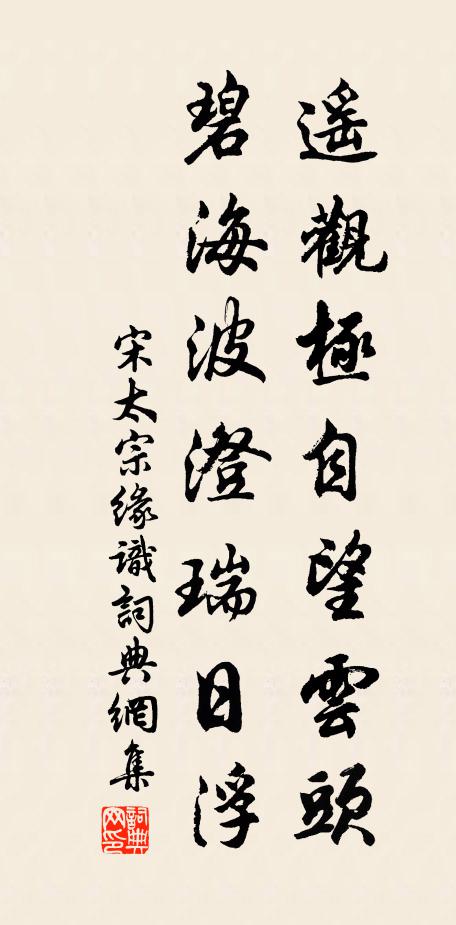 遥觀極自望雲頭
碧海波澄瑞日浮
宋太宗缘識詞典網集
詞典网印